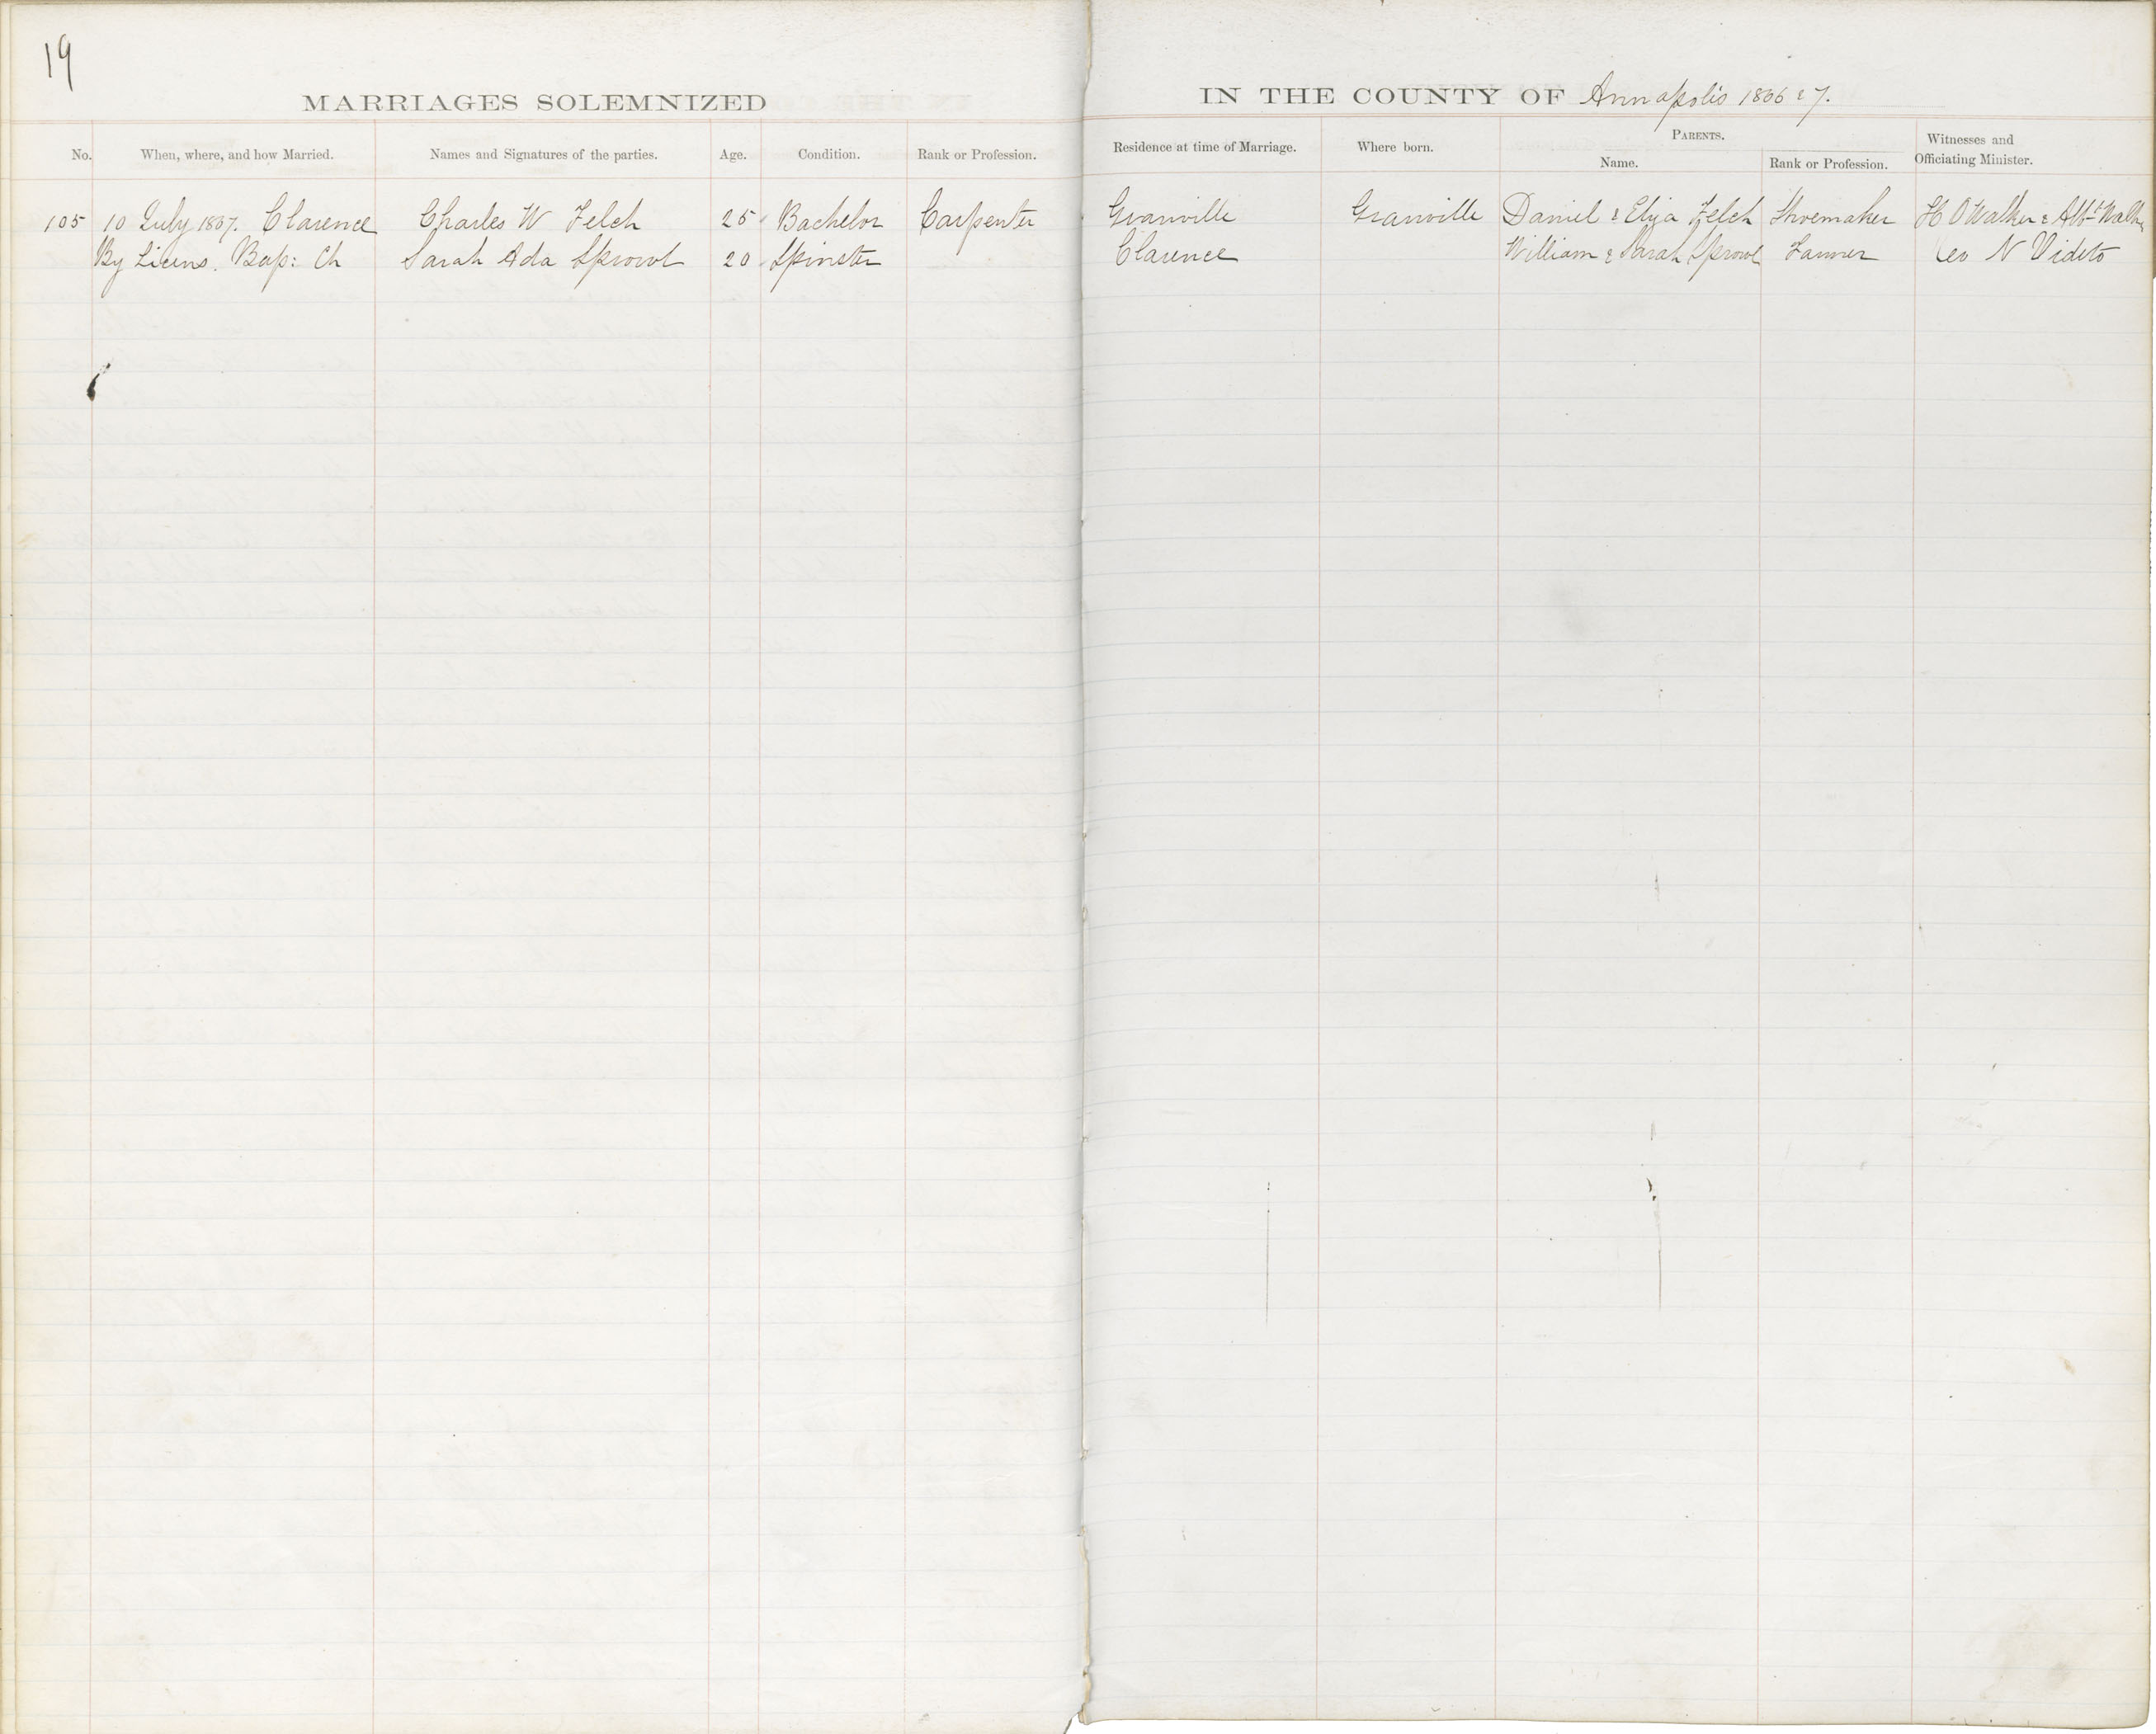 19
MARRIAGES SOLEMNIZED IN THE COUNTY OF Annapolis 1866 & 7.
No. When, where, and how Married. Names and Signatures of the parties. Age. Condition. Rank or Profession. Residence at time of Marriage. Where born. PARENTS. Name. Rank or Profession. Witnesses and Officiating Minister.
105 10 July 1867. Clarence Charles W Felch 25 Bachelor Carpenter Granville Granville Daniel & Eliza Felch Shoemaker H O Walker &
By Licens. Bap: Ch Sarah Ada Sprowl 20 Spinster Clarence William & Sarah Sprowl Farmer N Videto